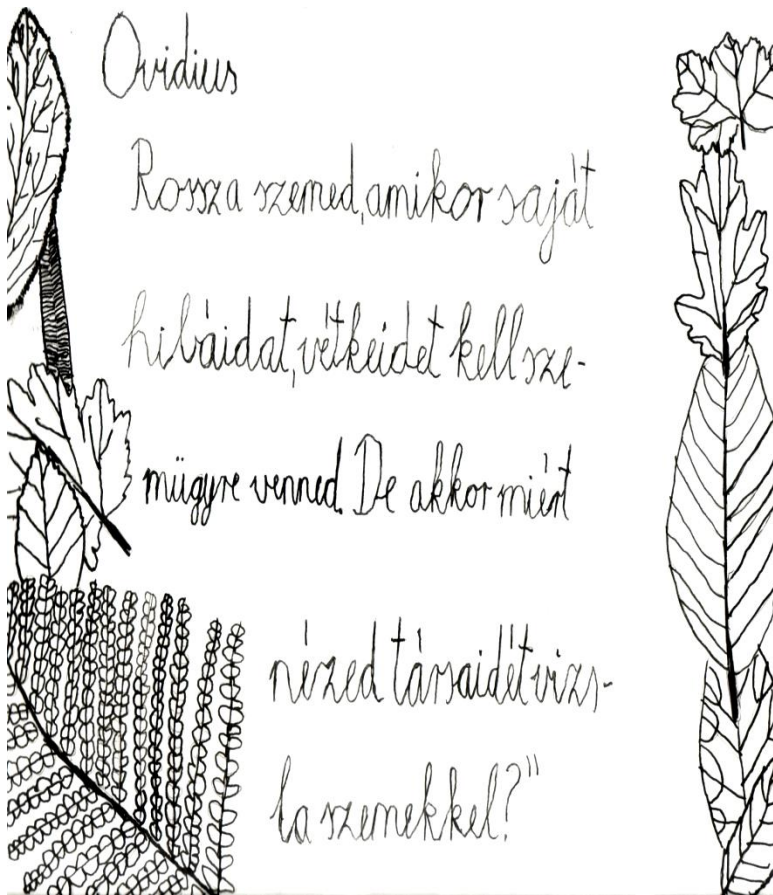 Ovidius
Rossz a szemed, amikor saját
hibáidat, vétkeidet kell sze-
mügyre venned. De akkor miért
nézed társaidét vizs-
la szemekkel?"